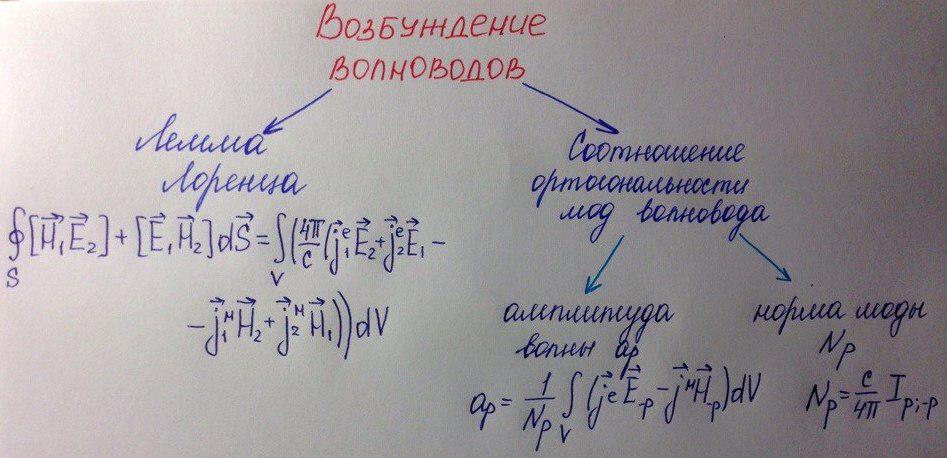 Возбуждение
волноводов
Лемма
Лоренца
∮_S [H⃗₁E⃗₂] + [E⃗₁H⃗₂] dS⃗ = ∫_V (4π/c (j⃗₁ᵉE⃗₂ + j⃗₂ᵉE⃗₁ −
− j⃗₁ᴹH⃗₂ + j⃗₂ᴹH⃗₁)) dV
Соотношение
ортогональности
мод волновода
амплитуда
волны aₚ
aₚ = 1/Nₚ ∫_V (j⃗ᵉE⃗₋ₚ − j⃗ᴹH⃗₋ₚ) dV
норма моды
Nₚ
Nₚ = c/4π I_{p;-p}